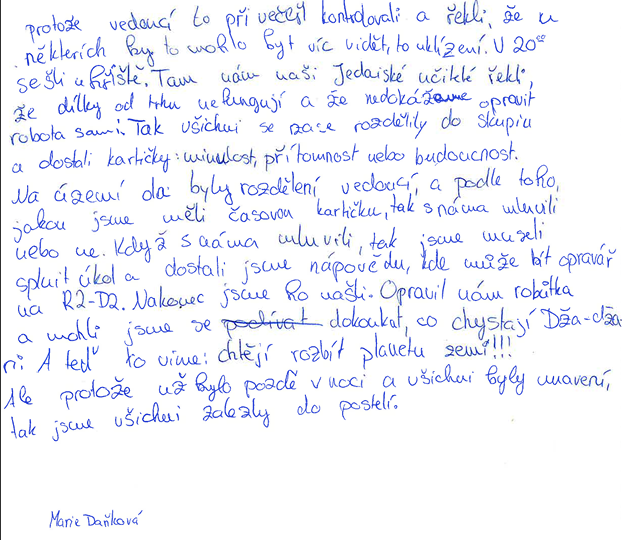 protože vedoucí to při večeři kontrolovali a řekli, že u
některích by to mohlo byt víc vidět, to uklízení. V 20ºº
sešli u hřiště. Tam nám naši Jedaiské učitelé řekli,
že dílky od trhu nefungují a že nedokážeme opravit
robota sami. Tak všichni se zase rozdělily do skupin
a dostali kartičky: minulost, přítomnost nebo budoucnost.
Na území byly rozdělení vedoucí, a podle toho,
jakou jsme měli časovou kartičku, tak s náma mluvili
nebo ne. Když s náma mluvili, tak jsme museli
splnit úkol a dostali jsme nápovědu, kde může být opravář
na R2-D2. Nakonec jsme ho našli. Opravil nám robůtka
a mohli jsme se podívat dokoukat, co chystají Dža-dža
ři. A teď to víme: chtějí rozbít planetu zemi!!!
Ale protože už bylo pozdě v noci a všichni byly unavení,
tak jsme všichni zalezly do postelí.
Marie Daňková